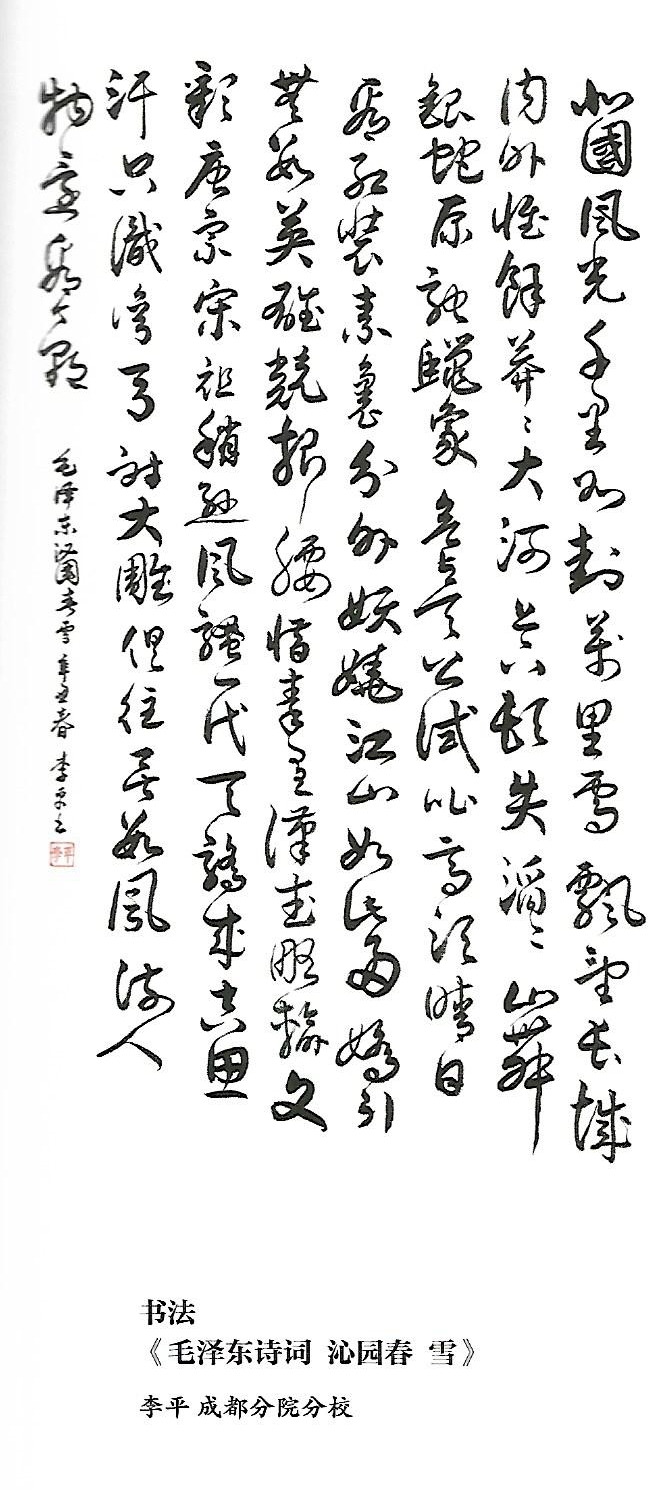 北國風光千里冰封萬里雪飄望長城
内外惟餘莽〻大河上下頓失滔〻山舞
銀蛇原馳蠟象欲與天公試比高須晴日
看紅裝素裹分外妖嬈江山如此多嬌引
無數英雄競折腰惜秦皇漢武略輸文
彩唐宗宋祖稍遜風騷一代天驕成吉思
汗只識彎弓射大雕俱往矣數風流人
物還看今朝
毛泽东沁園春雪 辛丑春 李平书
李平
书法
《毛泽东诗词 沁园春 雪》
李平 成都分院分校